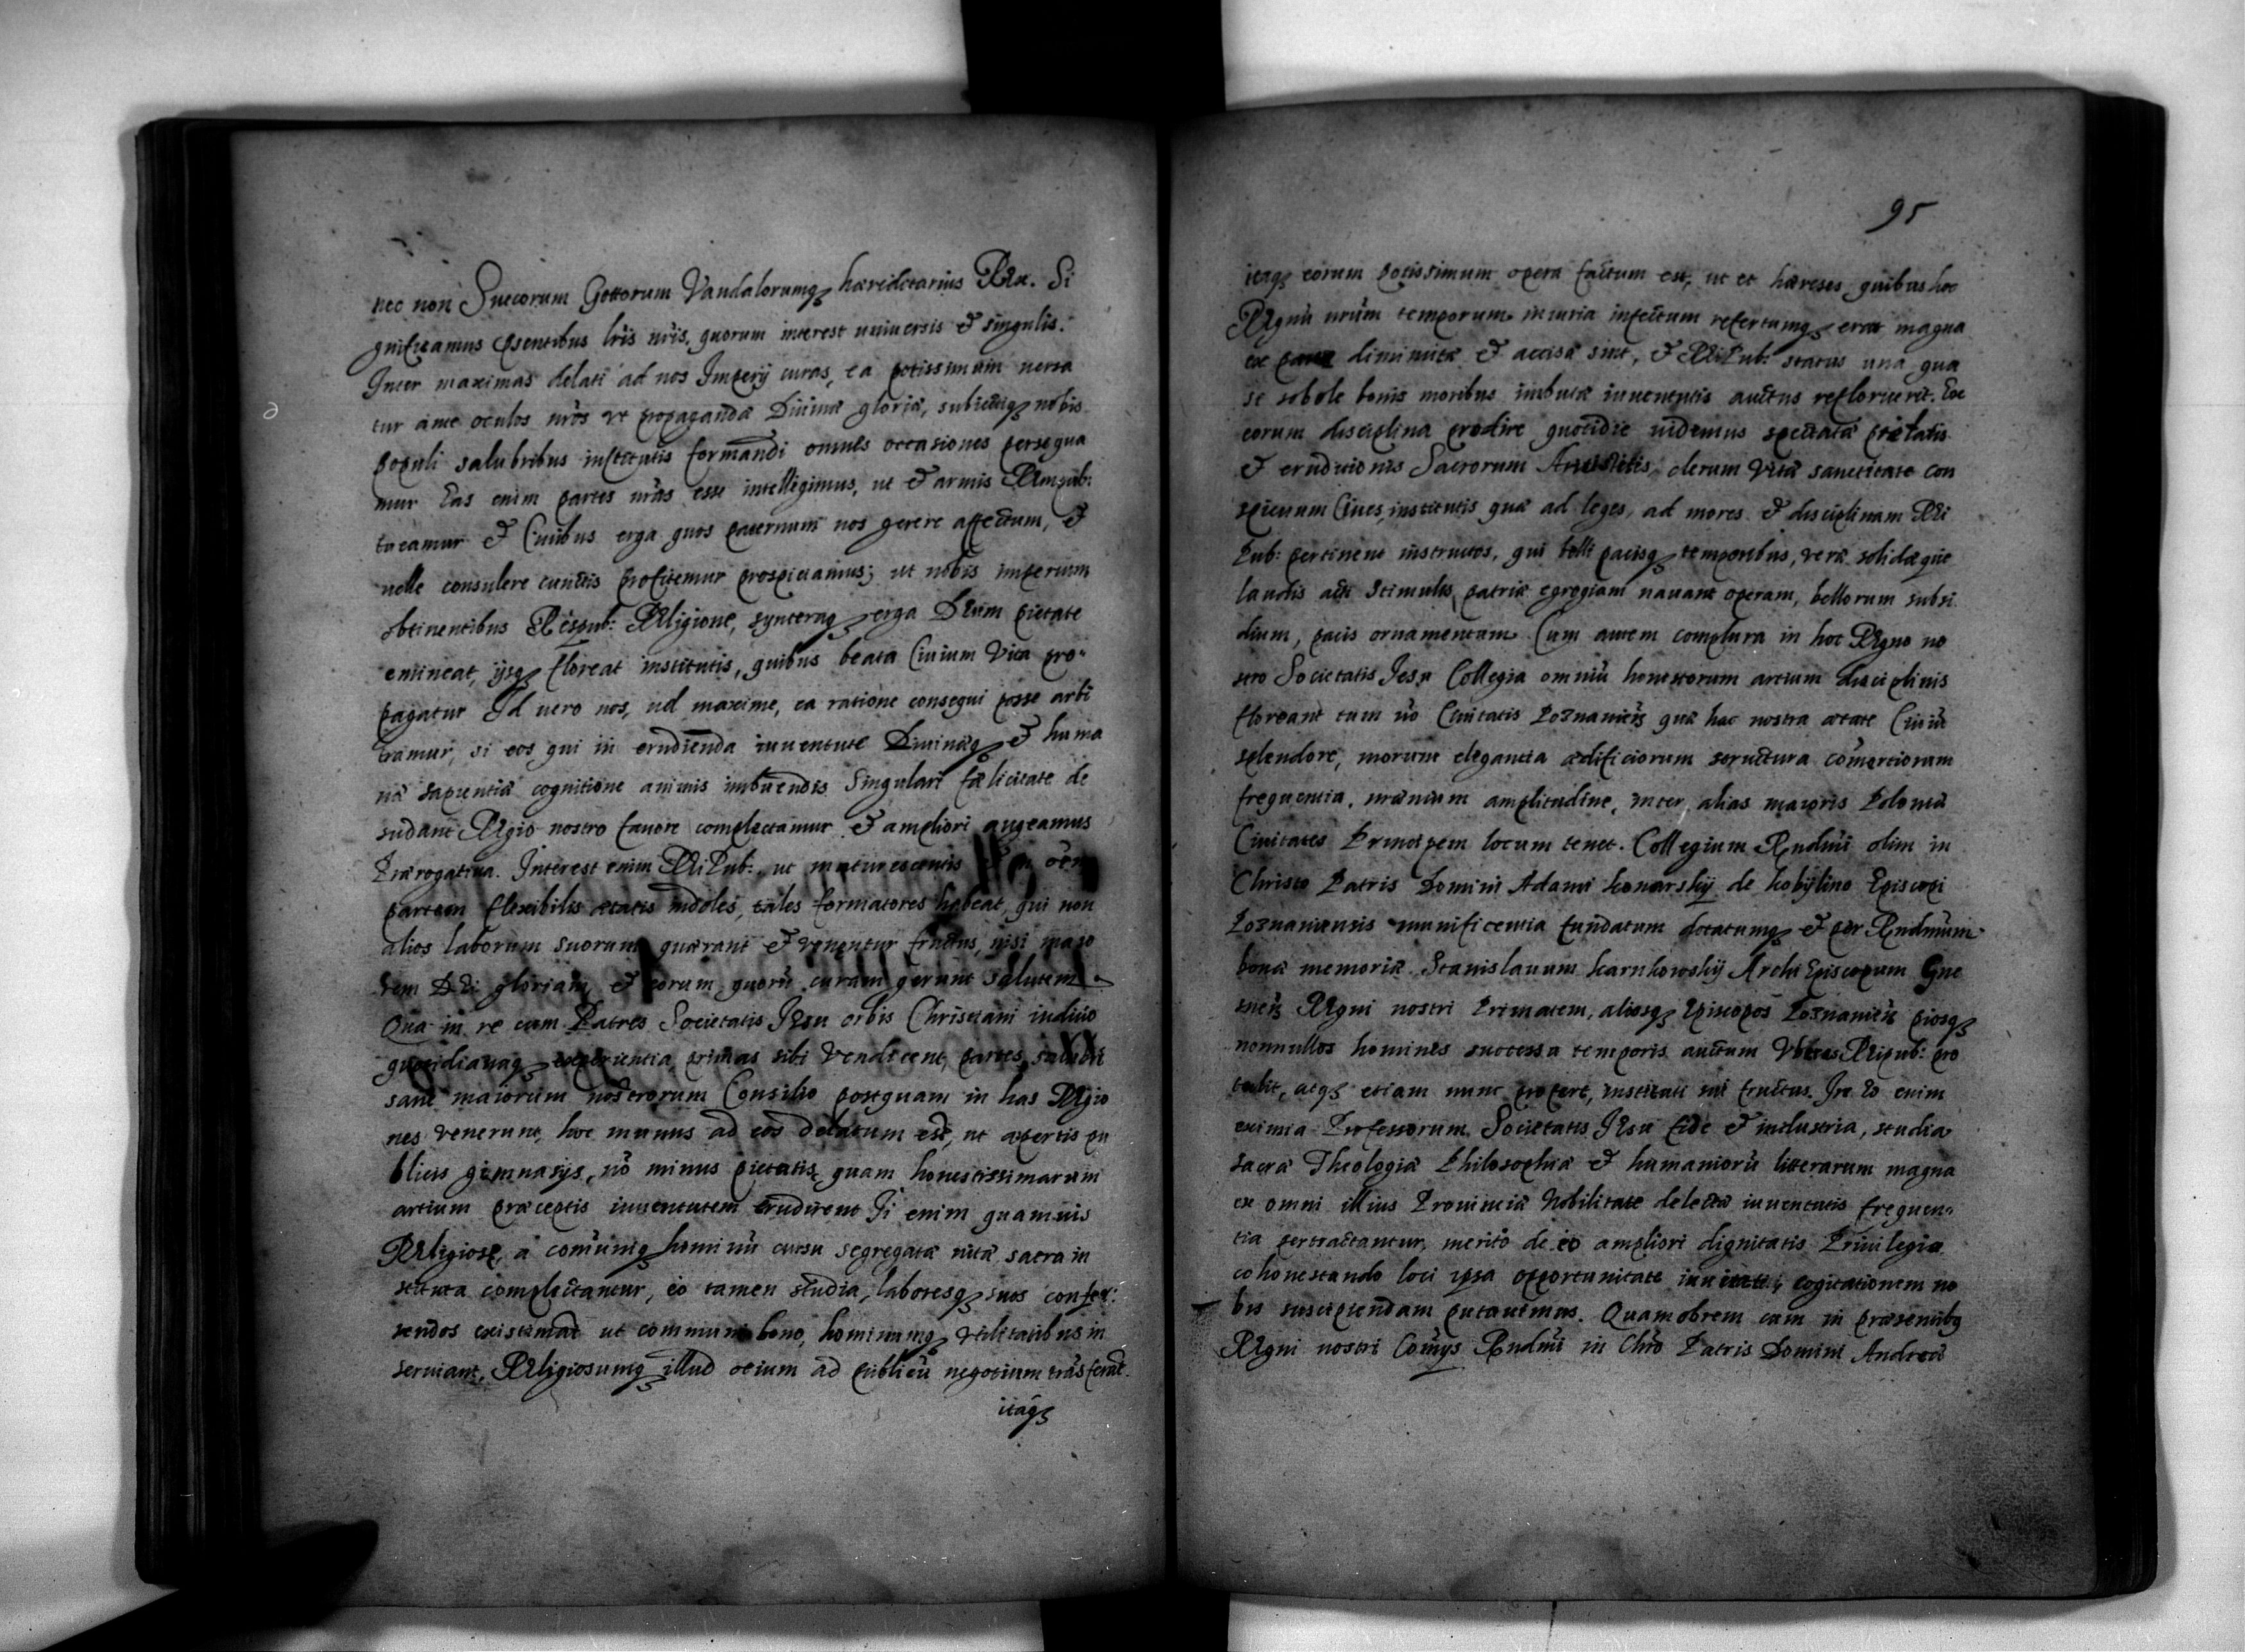 nec non Suecorum Gottorum Vandalorumq₃ hæreditarius Rex. Si
gnificamus psentibus lris nris, quorum interest uniuersis et singulis.
Inter maximas delati ad nos Imperij curas, ea potissimum uersa
tur ante oculos nros vt propagandæ Diuinæ gloriæ, subiectiq₃ nobis
populi salubribus institutis formandi omnes occasiones persequa
mur Eas enim partes nras esse intelligimus, ut et armis Rempub:
tueamur et Ciuibus erga quos paternum nos gerere affectum, et
uelle consulere cunctis profitemur prospiciamus; ut nobis imperium
obtinentibus Respub: Religione, synceraq₃ erga Deum pietate
emineat, ijsq₃ floreat institutis, quibus beata Ciuium Vita pro-
pagatur Id uero nos, uel maxime, ea ratione consequi posse arbi
tramur, si eos qui in erudienda iuuentute Diuinæq₃ et huma
næ sapientiæ cognitione animis imbuendis Singulari fælicitate de
sudant Regio nostro fauore complectamur et ampliori augeamus
Prærogatiua. Interest enim Rei Pub:, ut maturescentis et in oem
partem flexibilis ætatis indoles, tales formatores habeat, qui non
alios laborum suorum quærant et venentur fructus, nisi maio
rem Dei gloriam, et eorum quorū curam gerunt salutem
Qua in re cum Patres Societatis Iesu orbis Christiani iudicio
quotidianaq₃ experientia, primas sibi Vendicent partes, salubri
sane maiorum nostrorum Consilio postquam in has Regio
nes venerunt, hoc munus ad eos delatum est, ut apertis pu
blicis gimnasijs, nō minus pietatis quam honestissimarum
artium præceptis iuuentutem erudirent Ii enim quamuis
Religiose, a comuniq₃ hominū cursu segregatæ uitæ sacra in
stituta complectantur, eo tamen studia, laboresq₃ suos confer:
rendos existimāt ut communi bono, hominumq₃ vtilitatibus in
seruiant, Religiosumq₃ illud ocium ad publicū negotium trāsferāt.
itaq₃
95
itaq₃ eorum potissimum opera factum est, ut et hæreses quibus hoc
Regnū nrum temporum iniuria infectum refertumq₃ erat magna
ex parte diminutæ et accisæ sint, et Rei Pub: status una qua
si sobole bonis moribus imbutæ iuuentutis auctus refloruerit. Ex
eorum disciplina prodire quotidie uidemus spectatæ pietatis
et eruditionis Sacrorum Antistites, clerum Vitæ sanctitate con
spicuum Ciues, institutis quæ ad leges, ad mores et disciplinam Rei
Pub: pertinent instructos, qui belli pacisq₃ temporibus, veræ solidæque
laudis acti stimulis, patriæ egregiam nauant operam, bellorum subsi
dium, pacis ornamentum Cum autem complura in hoc Regno no
stro Societatis Iesu Collegia omniū honestorum artium disciplinis
floreant tum uō Ciuitatis Poznanieñ quæ hac nostra ætate Ciuiū
splendore, morum elegancia ædificiorum structura comertiorum
frequentia, mænium amplitudine, inter alias maioris Poloniæ
Ciuitates Principem locum tenet. Collegium Rndmi olim in
Christo Patris Domini Adami Konarskij de Kobijlino Episcopi
Poznaniensis munificentia fundatum dotatumq₃ et per Rndmum
bonæ memoriæ Stanislauum Karnkowskij Archi Episcopum Gne
sneñ Regni nostri Primatem, aliosq₃ Episcopos Poznanieñ piosq₃
nonnullos homines successu temporis auctum Vberes Reipub: pro
tulit, atq₃ etiam nunc profert, instituti sui fructus. In eo enim
eximia Professorum Societatis Iesu fide et industria, studia
sacræ Theologiæ Philosophiæ et humaniorū litterarum magna
ex omni illius Prouinciæ Nobilitate delectæ iuuentutis frequen-
tia pertractantur, merito de eo ampliori dignitatis Priuilegio
cohonestando loci ipsa opportunitate inuitati, cogitationem no
bis suscipiendam putauimus. Quamobrem cum in præsentibq
Regni nostri Comijs Rndmi in Chro Patris Domini Andreæ